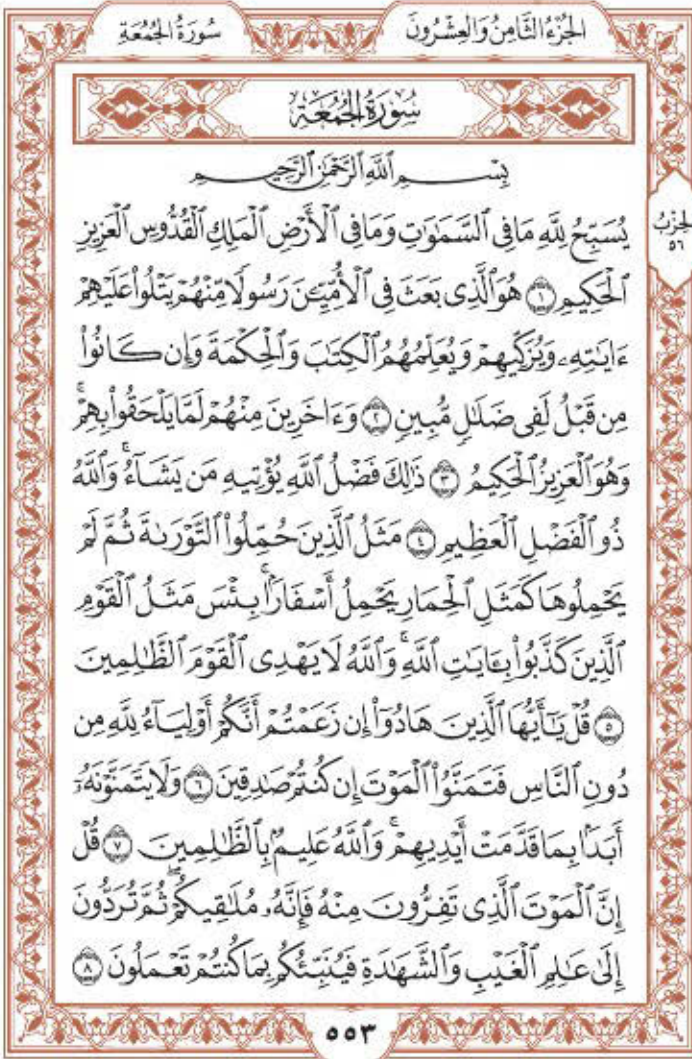 الجُزْءُ الثَّامِنُ وَالعِشْرُونَ
سُورَةُ الجُمُعَةِ
سُورَةُ الجُمُعَةِ
بِسْمِ ٱللَّهِ ٱلرَّحْمَٰنِ ٱلرَّحِيمِ
يُسَبِّحُ لِلَّهِ مَا فِي ٱلسَّمَٰوَٰتِ وَمَا فِي ٱلْأَرْضِ ٱلْمَلِكِ ٱلْقُدُّوسِ ٱلْعَزِيزِ
الحِزْبُ
٥٦
ٱلْحَكِيمِ ١ هُوَ ٱلَّذِى بَعَثَ فِى ٱلْأُمِّيِّـۧنَ رَسُولًا مِّنْهُمْ يَتْلُوا۟ عَلَيْهِمْ
ءَايَٰتِهِۦ وَيُزَكِّيهِمْ وَيُعَلِّمُهُمُ ٱلْكِتَٰبَ وَٱلْحِكْمَةَ وَإِن كَانُوا۟
مِن قَبْلُ لَفِى ضَلَٰلٍ مُّبِينٍ ٢ وَءَاخَرِينَ مِنْهُمْ لَمَّا يَلْحَقُوا۟ بِهِمْ ۚ
وَهُوَ ٱلْعَزِيزُ ٱلْحَكِيمُ ٣ ذَٰلِكَ فَضْلُ ٱللَّهِ يُؤْتِيهِ مَن يَشَآءُ ۚ وَٱللَّهُ
ذُو ٱلْفَضْلِ ٱلْعَظِيمِ ٤ مَثَلُ ٱلَّذِينَ حُمِّلُوا۟ ٱلتَّوْرَىٰةَ ثُمَّ لَمْ
يَحْمِلُوهَا كَمَثَلِ ٱلْحِمَارِ يَحْمِلُ أَسْفَارًۢا ۚ بِئْسَ مَثَلُ ٱلْقَوْمِ
ٱلَّذِينَ كَذَّبُوا۟ بِـَٔايَٰتِ ٱللَّهِ ۚ وَٱللَّهُ لَا يَهْدِى ٱلْقَوْمَ ٱلظَّٰلِمِينَ
٥ قُلْ يَٰٓأَيُّهَا ٱلَّذِينَ هَادُوٓا۟ إِن زَعَمْتُمْ أَنَّكُمْ أَوْلِيَآءُ لِلَّهِ مِن
دُونِ ٱلنَّاسِ فَتَمَنَّوُا۟ ٱلْمَوْتَ إِن كُنتُمْ صَٰدِقِينَ ٦ وَلَا يَتَمَنَّوْنَهُۥٓ
أَبَدًۢا بِمَا قَدَّمَتْ أَيْدِيهِمْ ۚ وَٱللَّهُ عَلِيمٌۢ بِٱلظَّٰلِمِينَ ٧ قُلْ
إِنَّ ٱلْمَوْتَ ٱلَّذِى تَفِرُّونَ مِنْهُ فَإِنَّهُۥ مُلَٰقِيكُمْ ۖ ثُمَّ تُرَدُّونَ
إِلَىٰ عَٰلِمِ ٱلْغَيْبِ وَٱلشَّهَٰدَةِ فَيُنَبِّئُكُم بِمَا كُنتُمْ تَعْمَلُونَ ٨
٥٥٣